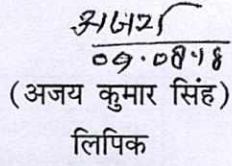 अजय
09.08.18
(अजय कुमार सिंह)
लिपिक